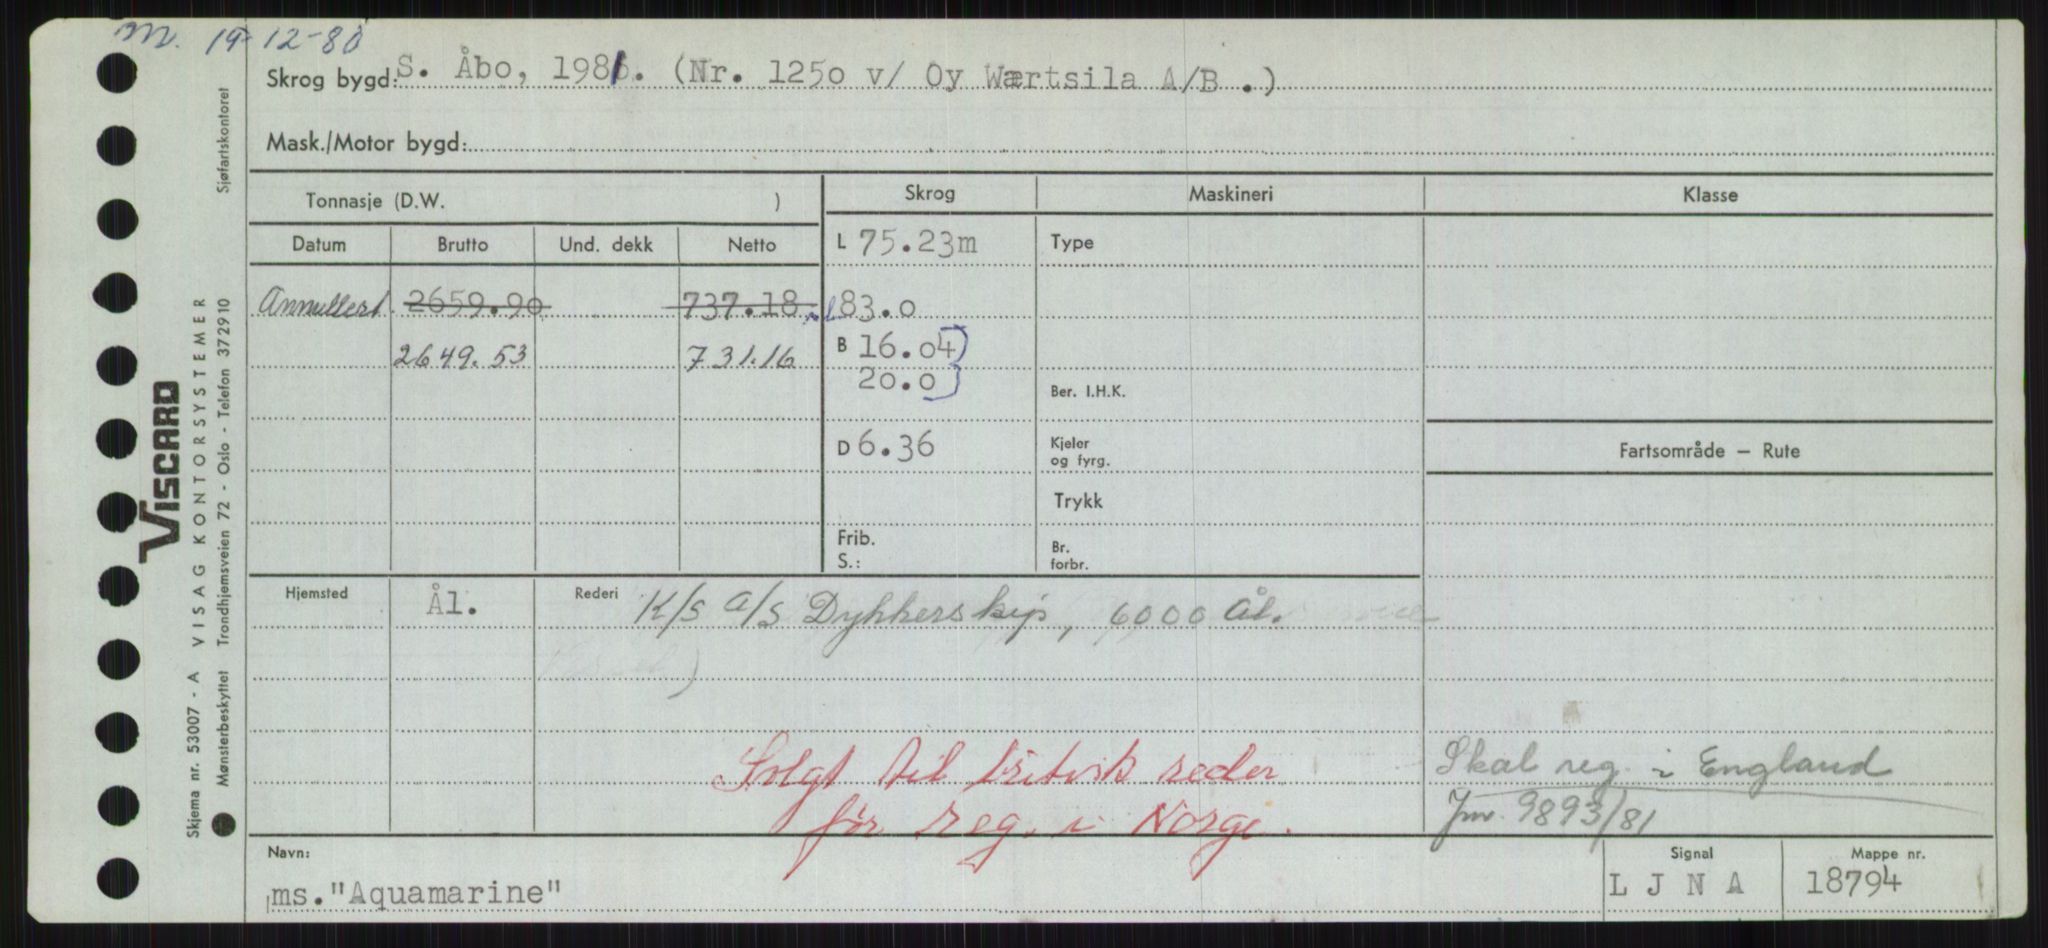 M. 19-12-80
Skrog bygd: S. Åbo, 1981. (Nr. 1250 v/ Oy Wærtsila A/B .)
Mask./Motor bygd:
Tonnasje (D.W. )
Skrog
Maskineri
Klasse
Datum
Brutto
Und. dekk
Netto
L 75.23m
Type
Annullert 2659.90 737.18
83.0
2649.53 731.16
B 16.04
20.0
Ber. I.H.K.
D 6.36
Kjeler
og fyrg.
Fartsområde – Rute
Trykk
Frib.
S.:
Br.
forbr.
Hjemsted
Ål.
Rederi
K/S A/S Dykkerskip, 6000 Ål.
Solgt til britisk reder
før reg. i Norge.
Skal reg. i England
Jnr. 9893/81
Navn:
ms."Aquamarine"
Signal
L J N A
Mappe nr.
18794
VISCARD
Skjema nr. 53007 - A VISAG KONTORSYSTEMER
Mønsterbeskyttet Trondhjemsveien 72 - Oslo - Telefon 372910
Sjøfartskontoret